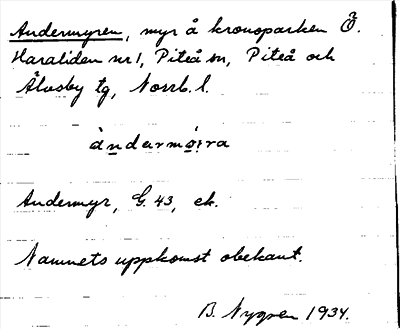 Andermyren, myr å kronoparken Ö.
Haraliden nr 1, Piteå sn, Piteå och
Älvsby tg, Norrb. l.
àndermø̀ra
Andermyr, G. 43, ek.
Namnets uppkomst obekant.
B. Nygren 1934.